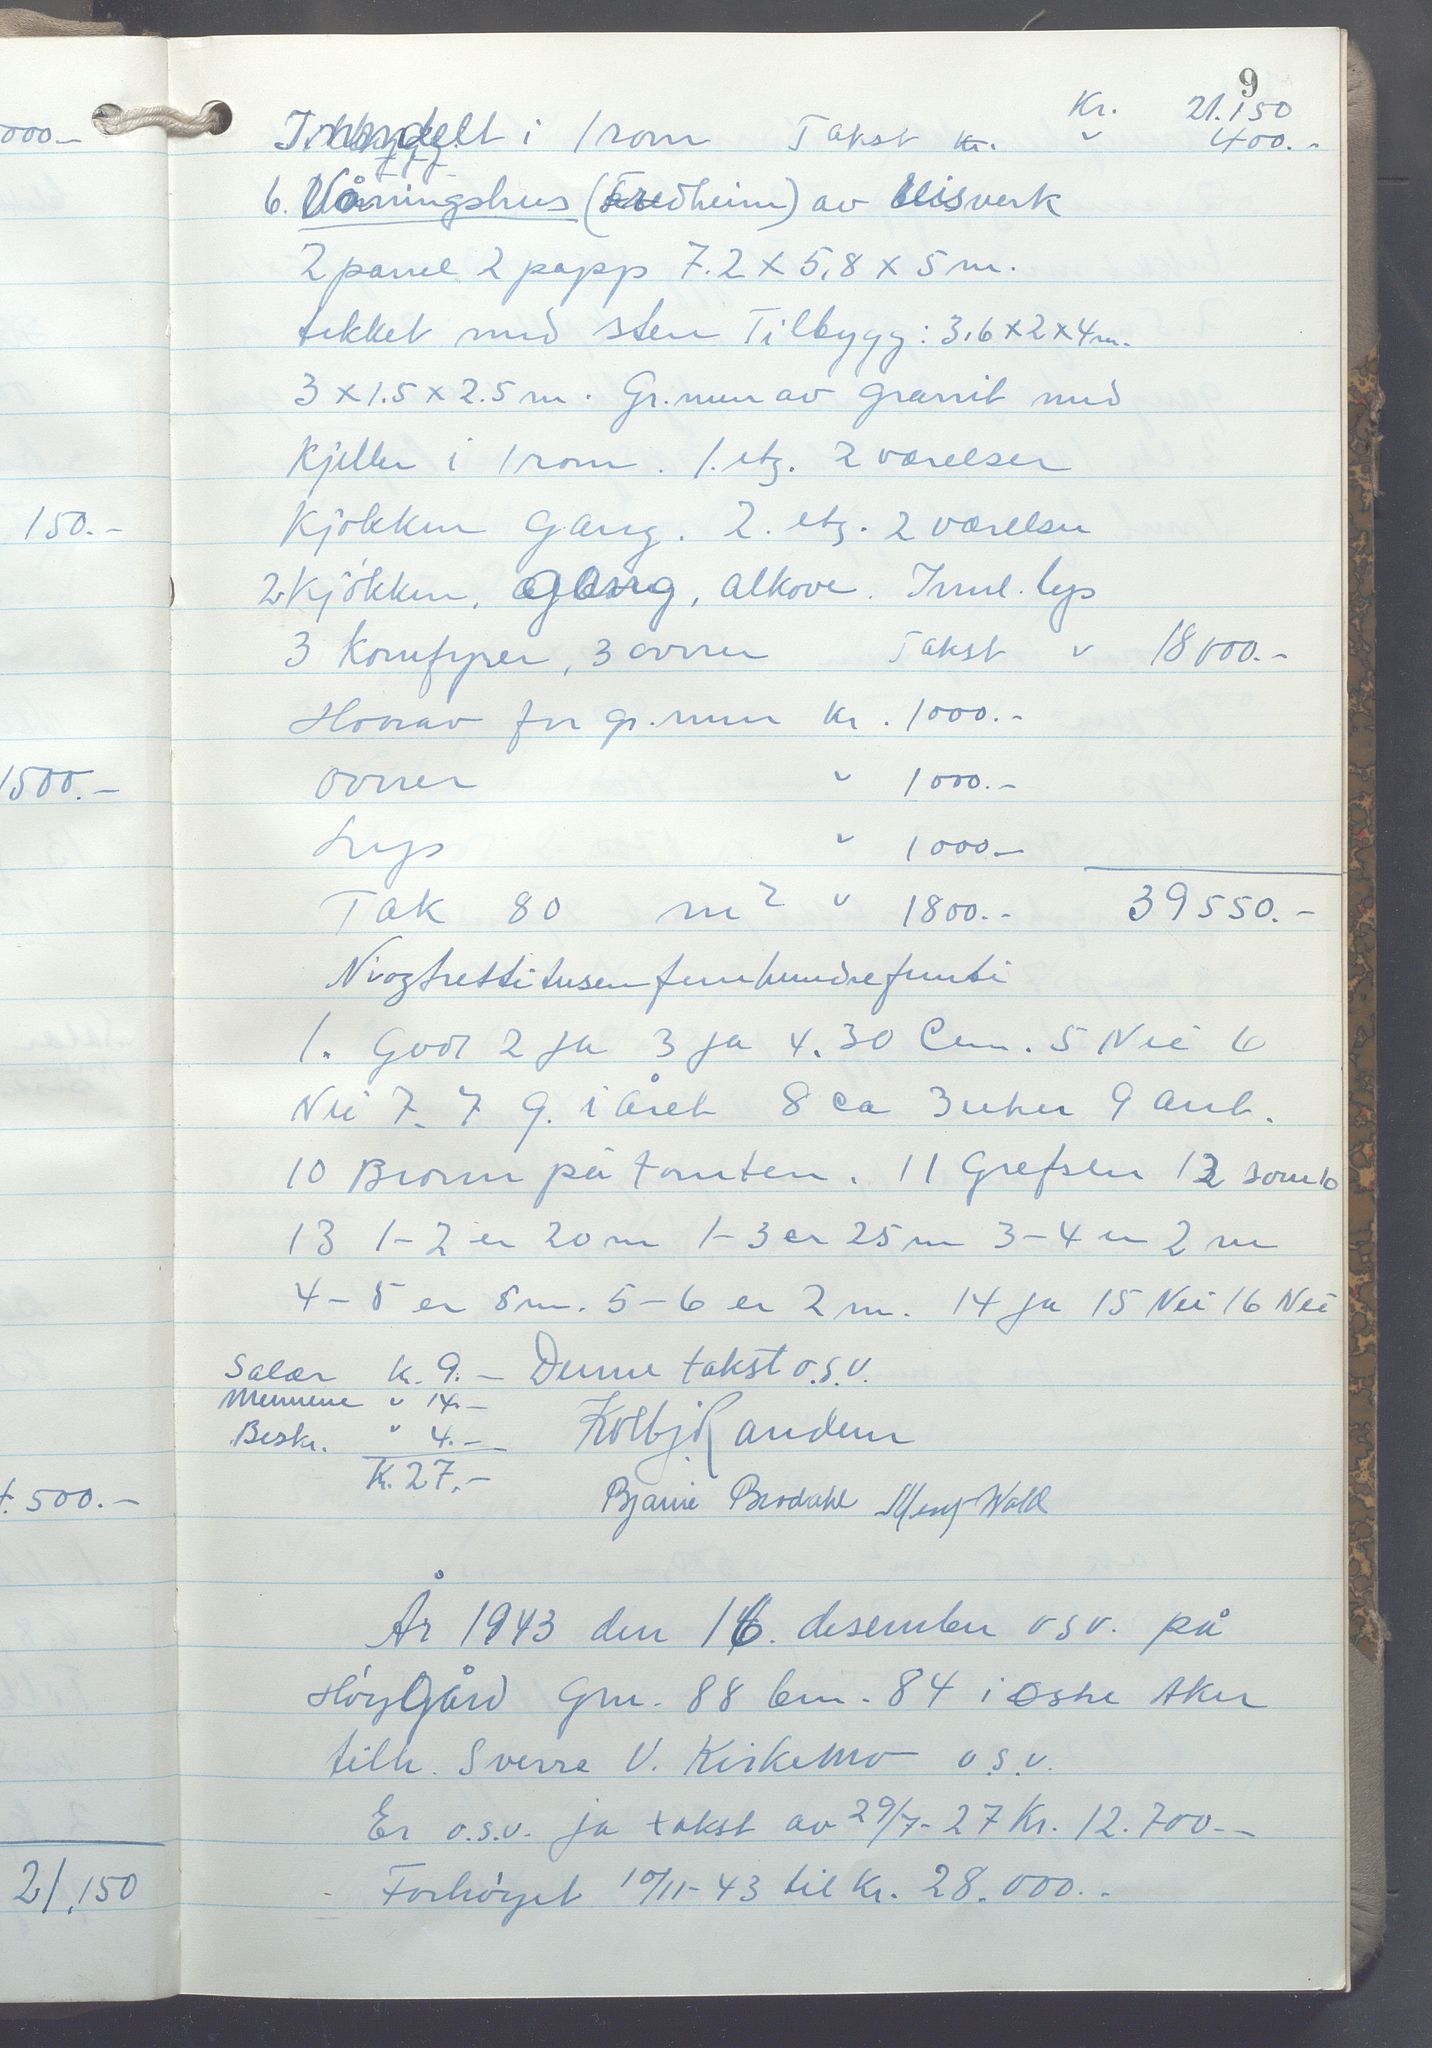 9
Kr. 21.150
Innndelt i 1 rom Takst kr. " 400.-
6. Våningshus (Fredheim) av Reisverk
2 panel 2 papp 7.2 x 5,8 x 5 m.
tekket med sten Tilbygg: 3,6 x 2 x 4 m.
3 x 1.5 x 2.5 m. Gr.mur av granit med
Kjeller i 1 rom. 1. etg. 2 værelser
Kjøkken gang. 2. etg. 2 værelser
2 Kjøkken, gang, alkove. Innl. lys
3 Komfyrer, 3 ovner Takst " 18000.-
Hvorav for gr.mur kr. 1000.-
ovner " 1000.-
Lys " 1000.-
Tak 80 m² " 1800.- 39550.-
Niogtrettitusenfemhundrefemti
1. God 2 ja 3 ja 4. 30 Cm. 5 Nei 6
Nei 7. 7 g. i året 8 ca 3 uker 9 anb.
10 Brønn på tomten. 11 Grefsen 12 som 10
13 1-2 er 20 m 1-3 er 25 m 3-4 er 2 m
4-5 er 8 m. 5-6 er 2 m. 14 ja 15 Nei 16 Nei
Salær kr. 9.- Denne takst o.s.v.
Mennene " 14.-
Beskr. " 4.-
Kolbj Randem
Kr. 27.-
Bjarne Brodahl Wold
År 1943 den 16. desember o s v. på
Høygård Gnr. 88 bnr. 84 i østre Aker
tilh. Sverre V. Kirkemo o.s.v.
Er o.s.v. ja takst av 29/7-27 Kr. 12.700.-
Forhøyet 10/11-43 til kr. 28.000.-
000.-
150.-
1500.-
500.-
21.150